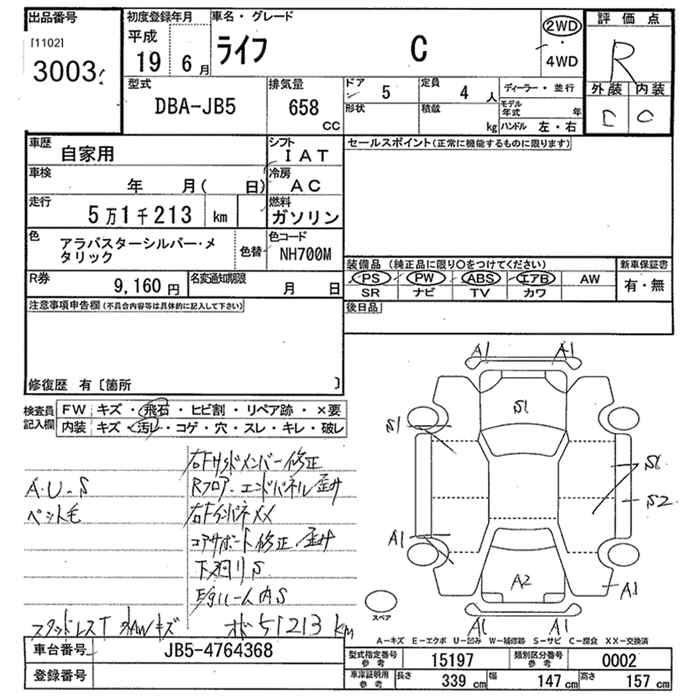 出品番号
[1102]
3003
初度登録年月
平成
19年 6月
車名・グレード
ライフ C
2WD
・
4WD
評価点
R
外装 内装
D C
型式
DBA-JB5
排気量
658
CC
ドア
5
定員
4 人
形状
積載
kg
ディーラー・並行
モデル年式 年
ハンドル 左・右
車歴
自家用
シフト
IAT
車検
年 月( 日)
冷房
AC
走行
5万1千213 km
燃料
ガソリン
色
アラバスターシルバー・メタリック
色替
色コード
NH700M
R券
9,160円
名変通知期限
月 日
セールスポイント(正常に機能するものに限ります)
装備品 (純正品に限り○をつけてください)
PS PW ABS エアB AW
SR ナビ TV カワ
新車保証書
有・無
後日品
注意事項申告欄(不具合内容等は具体的に記入して下さい)
修復歴 有〔箇所 〕
検査員記入欄
FW キズ・飛石・ヒビ割・リペア跡・×要
内装 キズ・汚レ・コゲ・穴・スレ・キレ・破レ
A・U・S
ペット毛
右Fサイドメンバー修正
Rフロア・エンドパネル歪み
右Fインパネ××
コアサポート修正 歪み
下廻りS
E/gルーム内S
スタッドレスT 外AWキズ
オド51213km
A1 A1
S1
S1
S1
S2
A1
A2
A1
A1 A1
スペア
A-キズ E-エクボ U-凹み W-補修跡 S-サビ C-腐食 XX-交換済
車台番号
JB5-4764368
登録番号
型式指定番号
参考
15197
類別区分番号
参考
0002
車庫証明用
参考
長さ 339 cm
幅 147 cm
高さ 157 cm